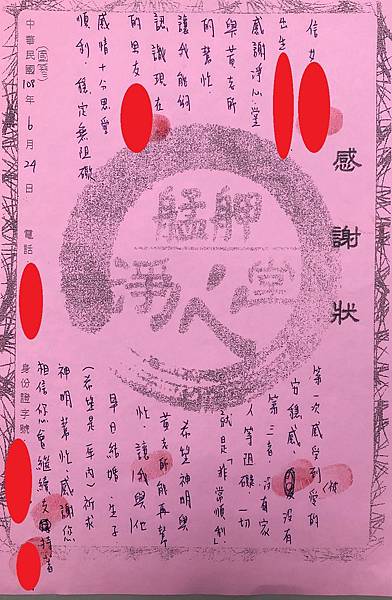 感謝狀
信女
出生
感謝淨心堂
與黃老師
的幫忙
讓我能夠
認識現在
的男友
感情十分恩愛
順利、穩定無阻礙
第一次感受到愛的
安穩感 沒有
第三者、沒有家
人等阻礙一切
就是「非常順利」
希望神明與
黃老師能再幫
忙、讓我與他
早日結婚、生子
(希望是一年內)祈求
神明幫忙感謝您
相信您會繼續支持著
中華民國(國曆)108年6月24日 電話 身份證字號
艋舺
淨心堂